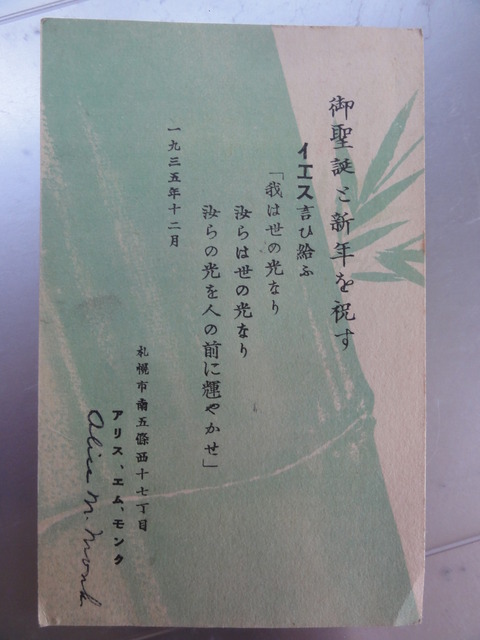 御聖誕と新年を祝す
イエス言ひ給ふ
「我は世の光なり
汝らは世の光なり
汝らの光を人の前に輝やかせ」
一九三五年十二月
札幌市南五條西十七丁目
アリス、エム、モンク
Alice M. Monk